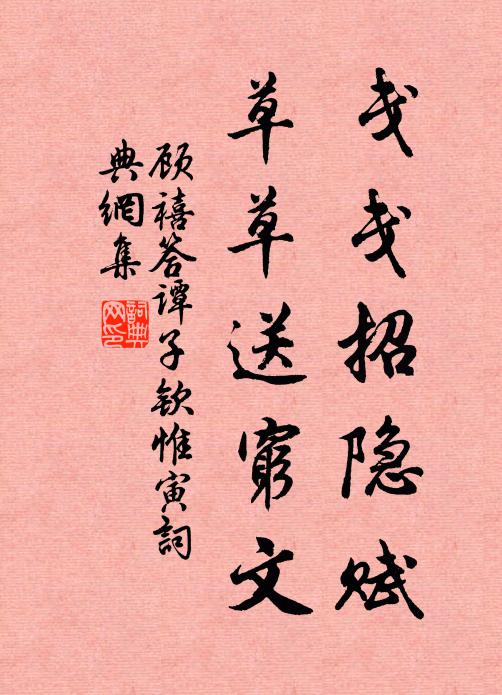 戋戋招隐赋
草草送窮文
顾禧答谭子钦惟寅詞
典網集
詞典
网印